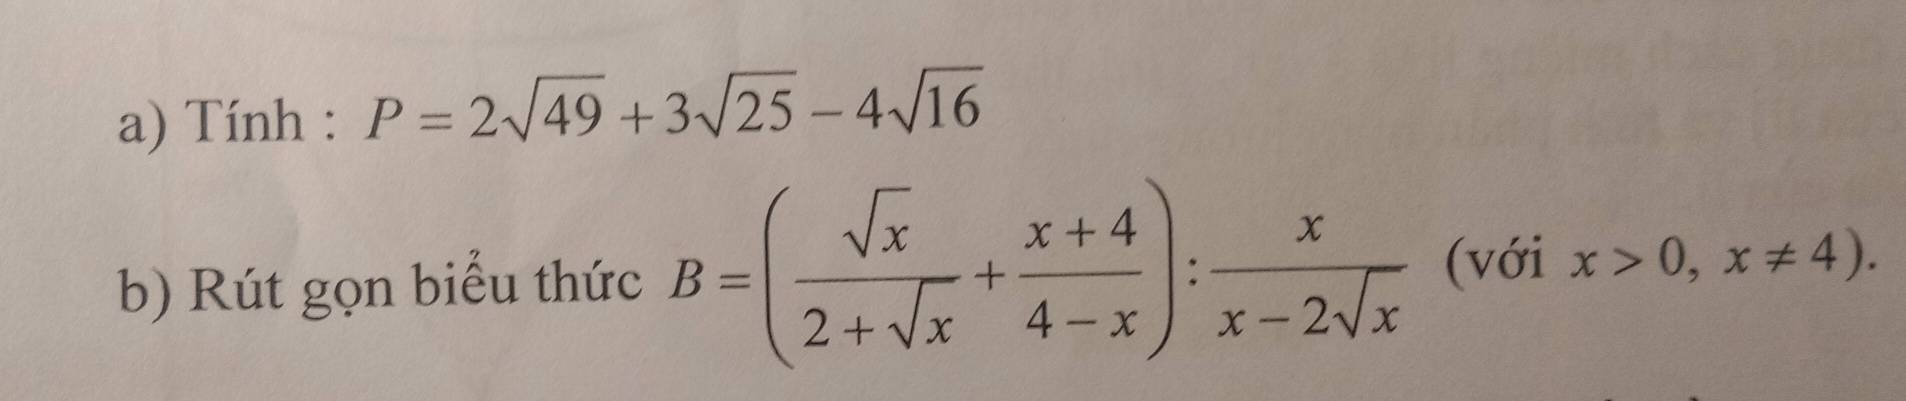 a) Tính : P = 2√49 + 3√25 − 4√16
b) Rút gọn biểu thức B = (√x/(2 + √x) + (x + 4)/(4 − x)) : x/(x − 2√x) (với x > 0, x ≠ 4).